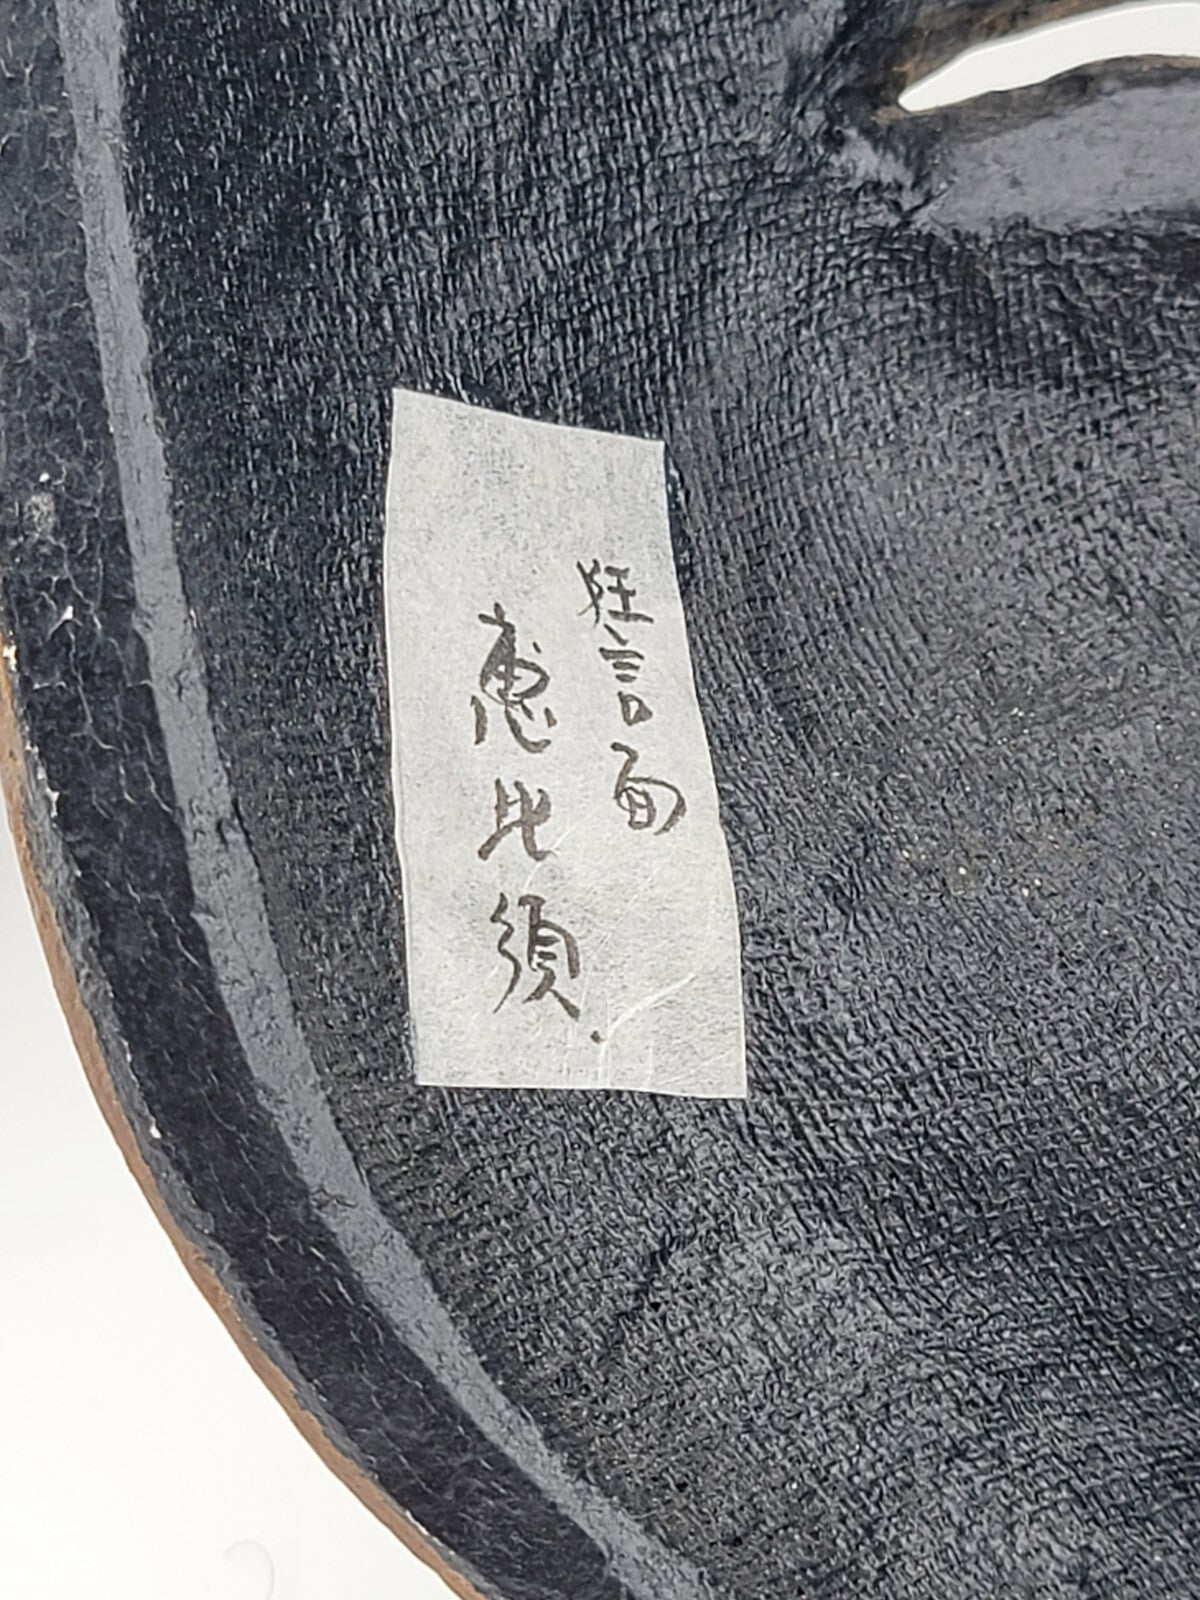 狂言面
恵比須.